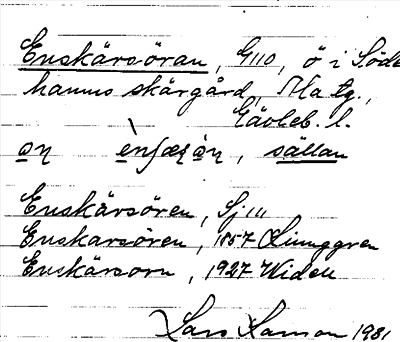 Enskärsöran, G110, ö i Söder
hamns skärgård, Ma tg.,
Gävleb. l.
sällan
Enskärsören, Sj 111
Enskarsören, 1857 Ljunggren
Enskärsorn, 1927 Widell
Lars Larsson 1981